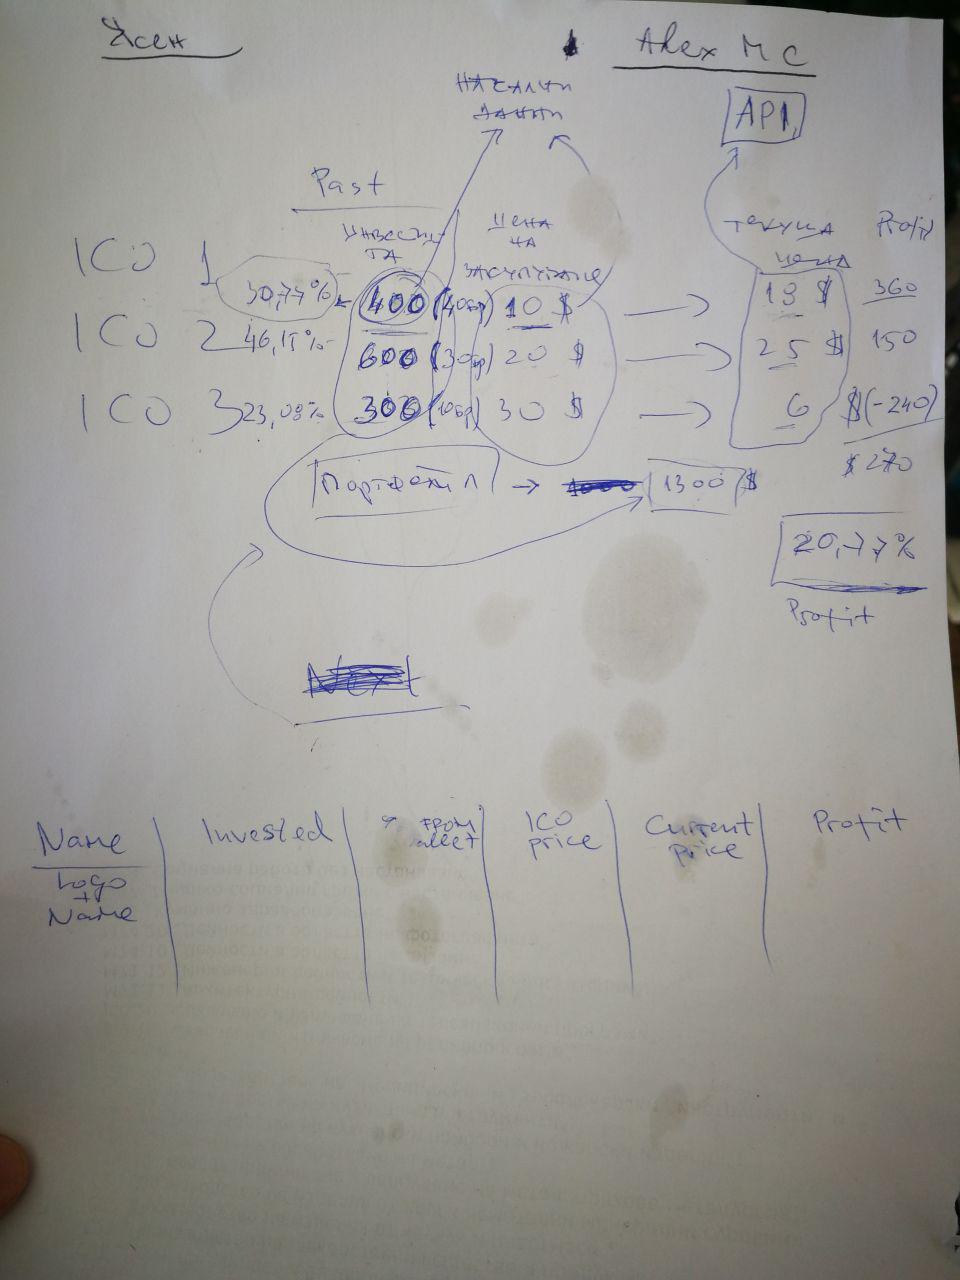 Ясен
Alex M C
начални
данни
API
Past
инвести-
та
цена
на
закупуване
текуща
цена
Profit
ICO 1 30,77% 400 (40бр) 10 $ 19 $ 360
ICO 2 46,15% 600 (30бр) 20 $ 25 $ 150
ICO 3 23,08% 300 (10бр) 30 $ 6 $ (-240)
$ 270
Портфейл → 1300 $
20,77%
Profit
Next
Name
Invested
From
ICO
price
Current
price
Profit
Logo
+
Name